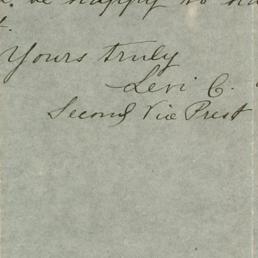 be happy to
Yours truly
Levi C.
Second Vice Prest